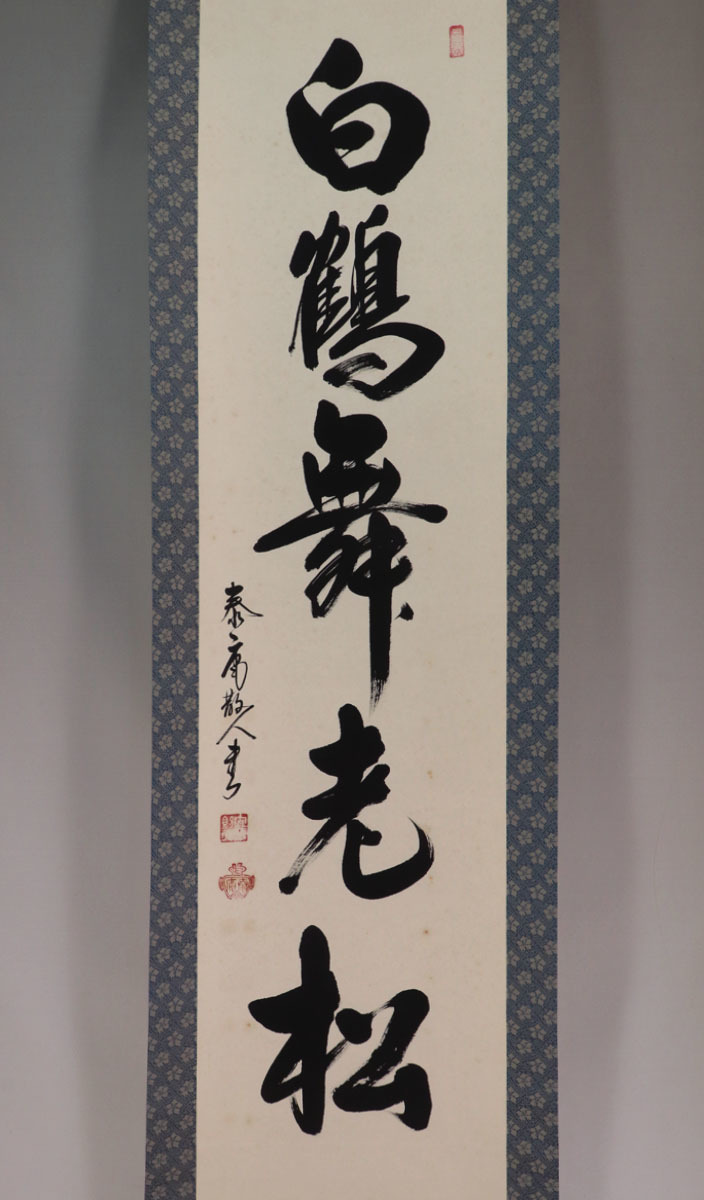 白鶴舞老松
泰庸散人書